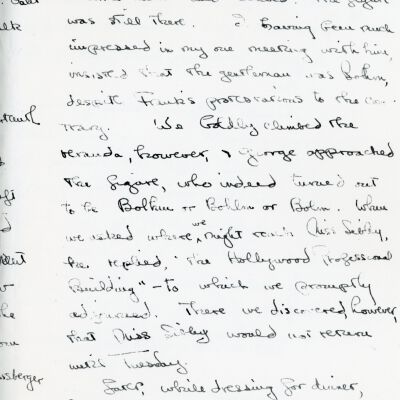 was still there. I having been much
impressed in my one meeting with him,
insisted that the gentleman was Bohm,
despite Frink's protestations to the con-
trary. We boldly climbed the
veranda, however, & George approached
the figure, who indeed turned out
to be Bolhm or Bohlm or Bohm. When
we asked where we might reach Miss Sibley,
he replied, "the Hollywood Professional
Building" – to which we promptly
adjourned. There we discovered, however,
that Miss Sibley would not return
until Tuesday.
Later, while dressing for dinner,